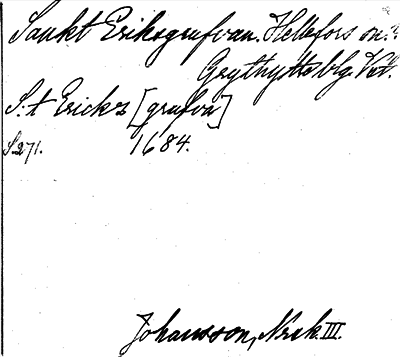 Sankt Eriksgrufvan. Hellefors sn.
Grythytte blg. Vstl.
S:t Ericks [grufva]
S.271. 1684.
Johansson, Nrsk. III.